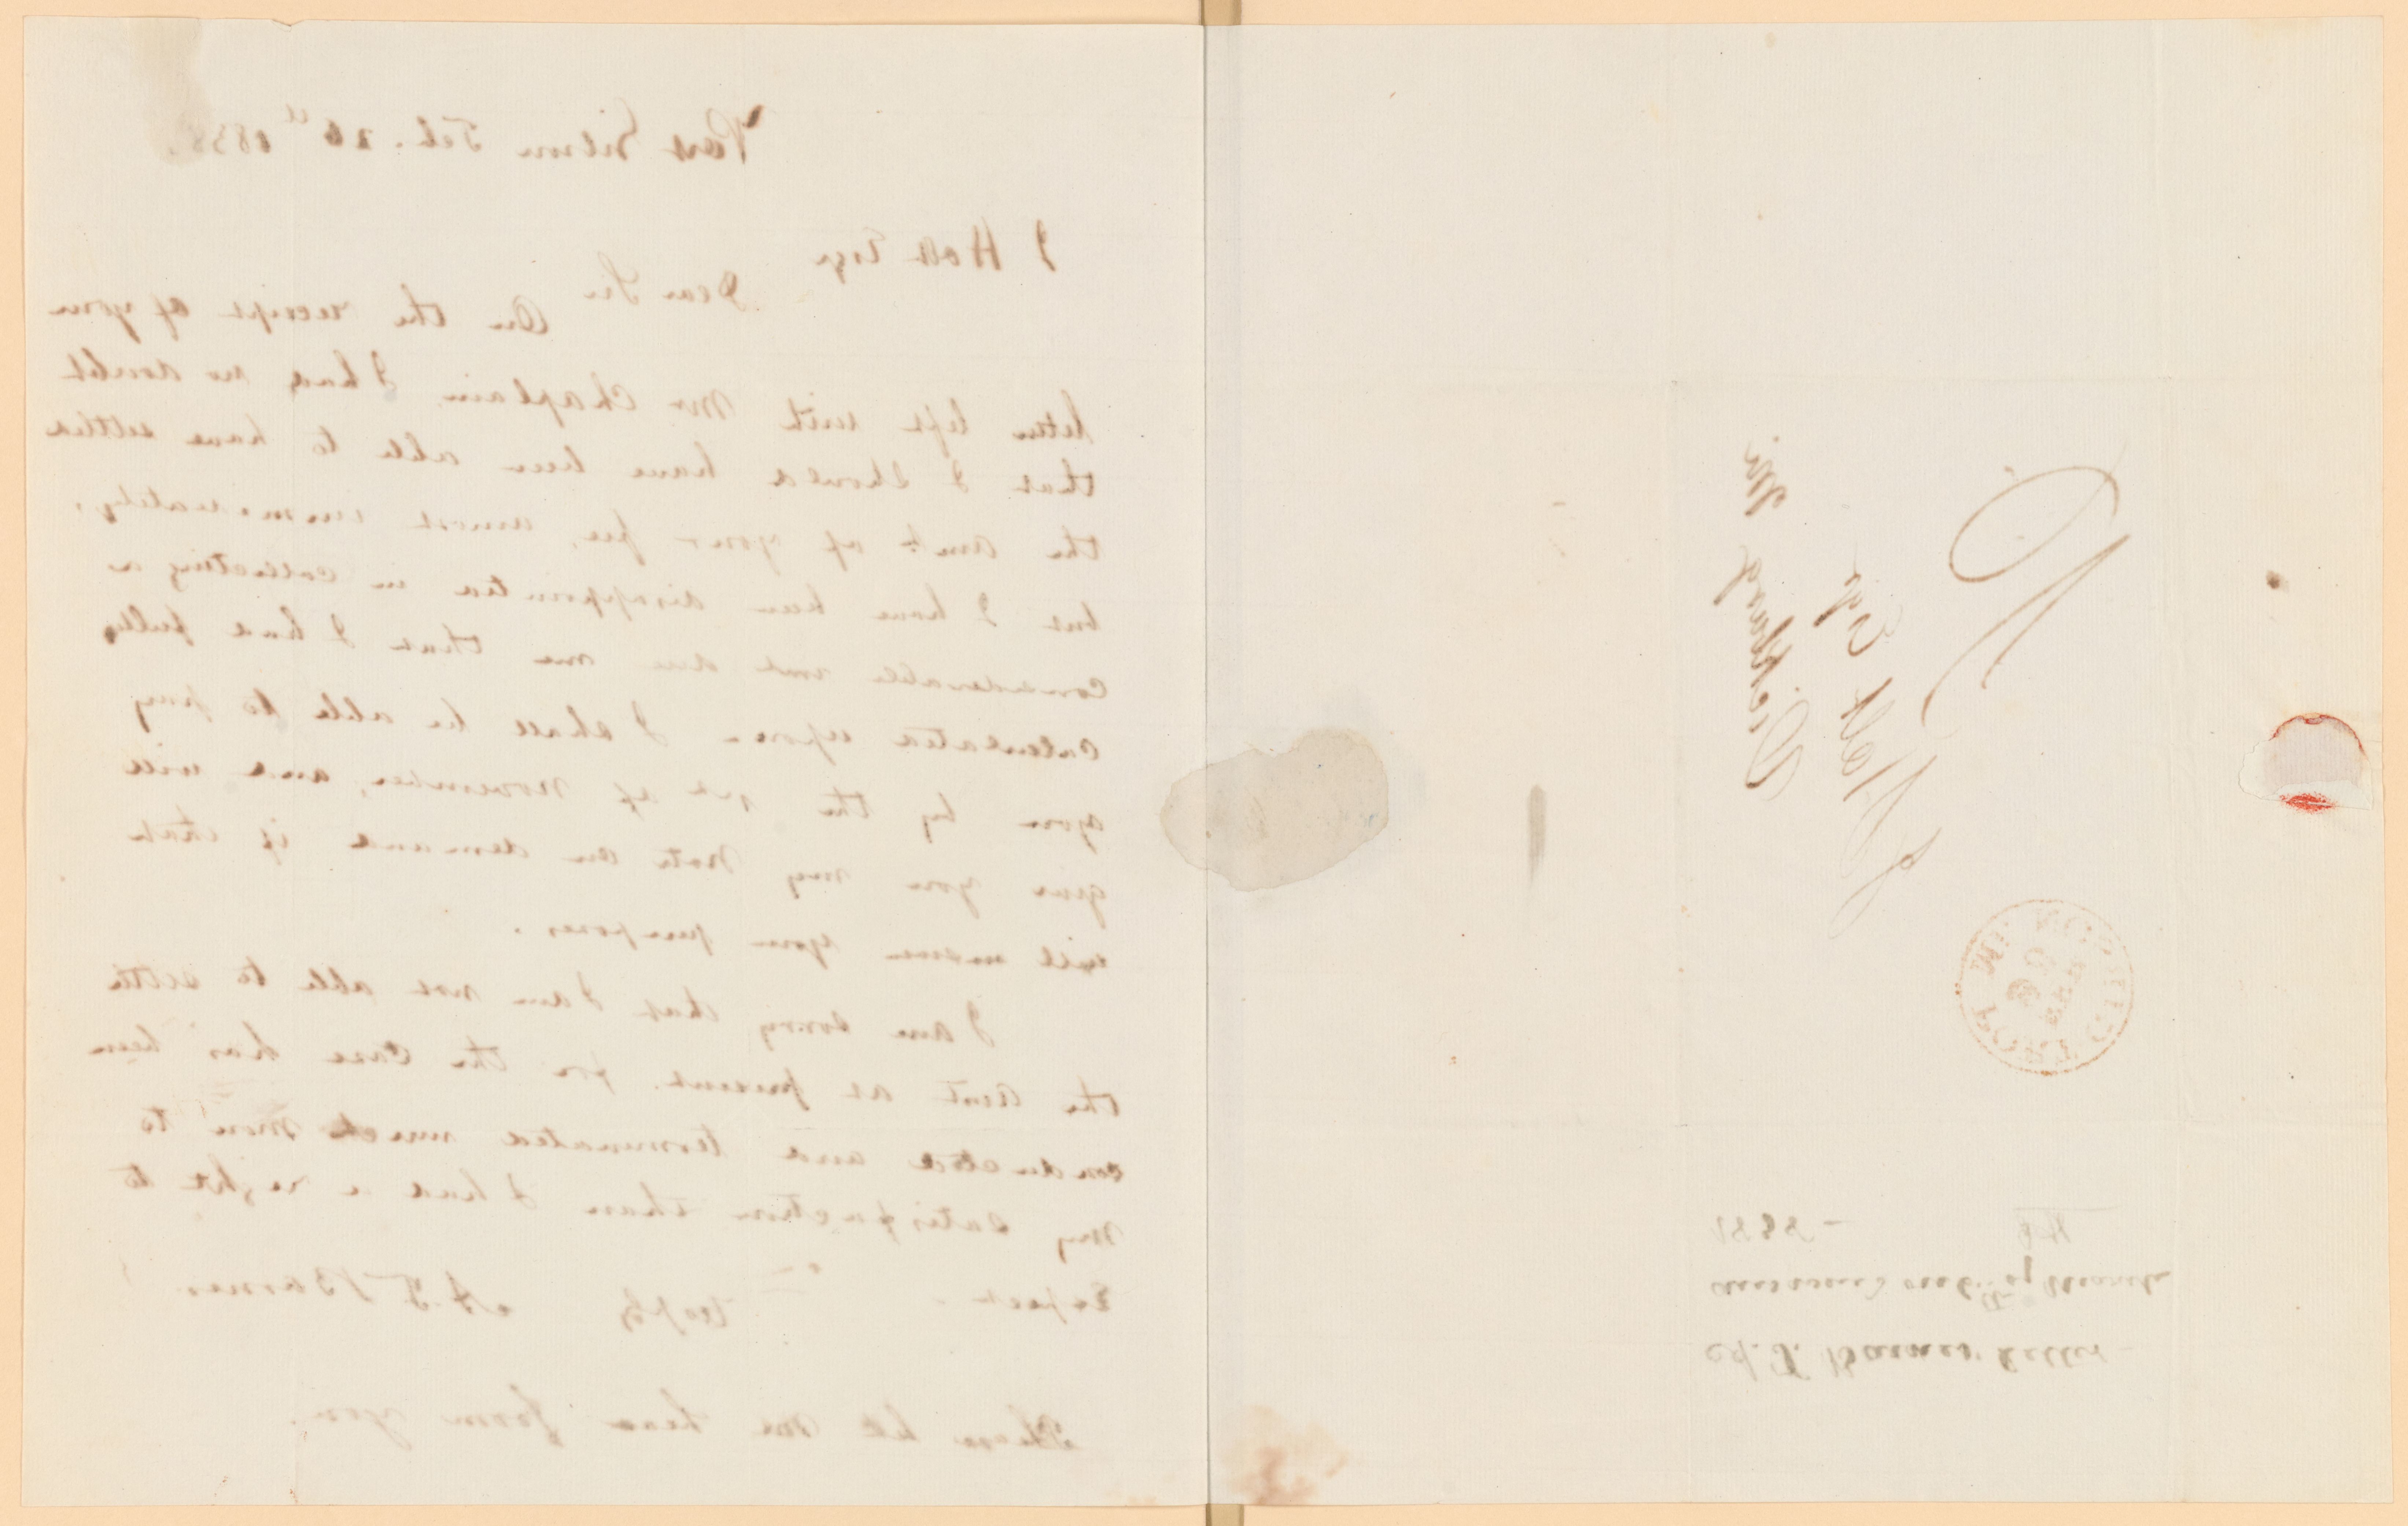 Port Gibson Feb. 26th 1838.
J Holt Esqr
Dear Sir
On the receipt of your
letter left with Mr Chaplain, I had no doubt
that I should have been able to have settled
the amt of your fee, almost immediately,
but I have been disappointed in collecting a
considerable due me that I had fully
calculated upon - I shall be able to pay
you by the of November, and will
give you my note on demand if that
will answer your purposes.
I am sorry that I am not able to settle
the amt at present. for the case has been
conducted and terminated much more to
my satisfaction than I had a right to
expect -
A. T. Barnes
Please let me hear from you.
J Holt Esqr
Vicksburg Mi
A. T. Barnes' Letter -
answered of March
1838 -